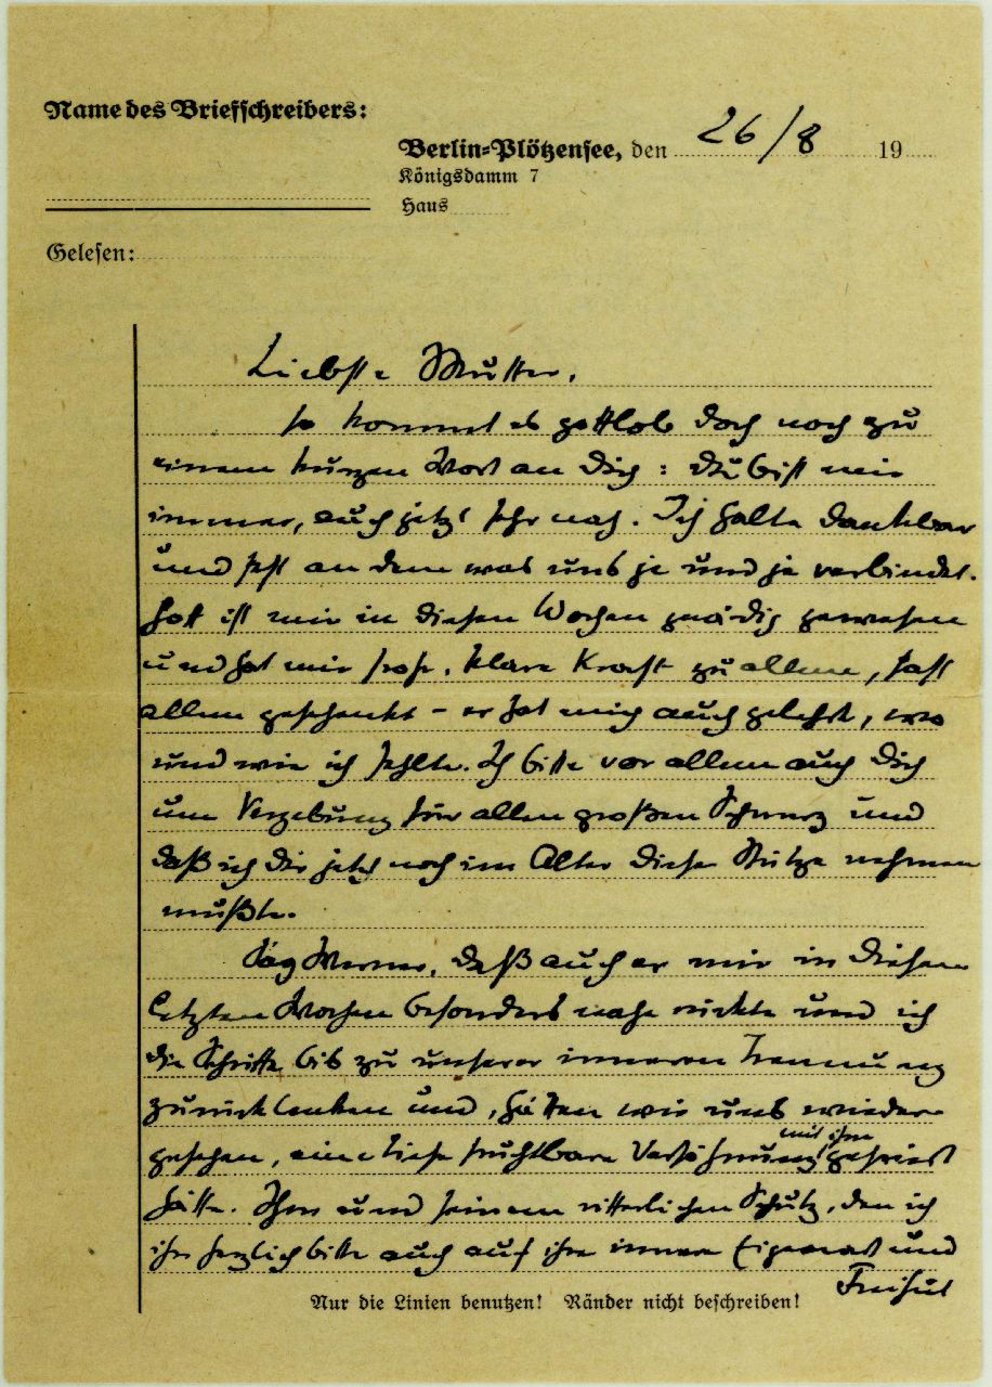 Name des Briefschreibers:
Berlin-Plötzensee, den 26/8 19
Königsdamm 7
Haus
Gelesen:
Liebste Mutter,
so kommt es gottlob doch noch zu
einem kurzen Wort an Dich: Du bist mir
immer, auch jetzt sehr nah. Ich halte dankbar
und fest an dem was uns je und je verbindet.
Gott ist mir in diesen Wochen gnädig gewesen
und hat mir frohe, klare Kraft zu allem, fast
allem geschenkt - er hat mich auch gelehrt, wo
und wie ich fehlte. Ich bitte vor allem auch Dich
um Vergebung für allen großen Schmerz und
daß ich Dir jetzt noch im Alter diese Stütze nehmen
mußte.
Sag Werner, daß auch er mir in diesen
letzten Wochen besonders nahe rückte und ich
die Schritte bis zu unserer inneren Trennung
zurücklenken und, hätten wir uns wieder
gesehen, eine tiefe fruchtbare Versöhnung mit ihm gefeiert
hätte. Ihm und seinem ritterlichen Schutz, den ich
ihn herzlich bitte auch auf ihre innere Eigenart und
Freiheit
Nur die Linien benutzen! Ränder nicht beschreiben!